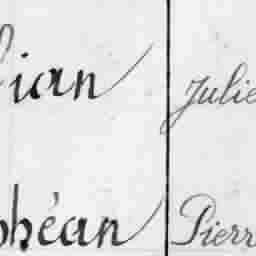 ian Julie
phéan Pierr